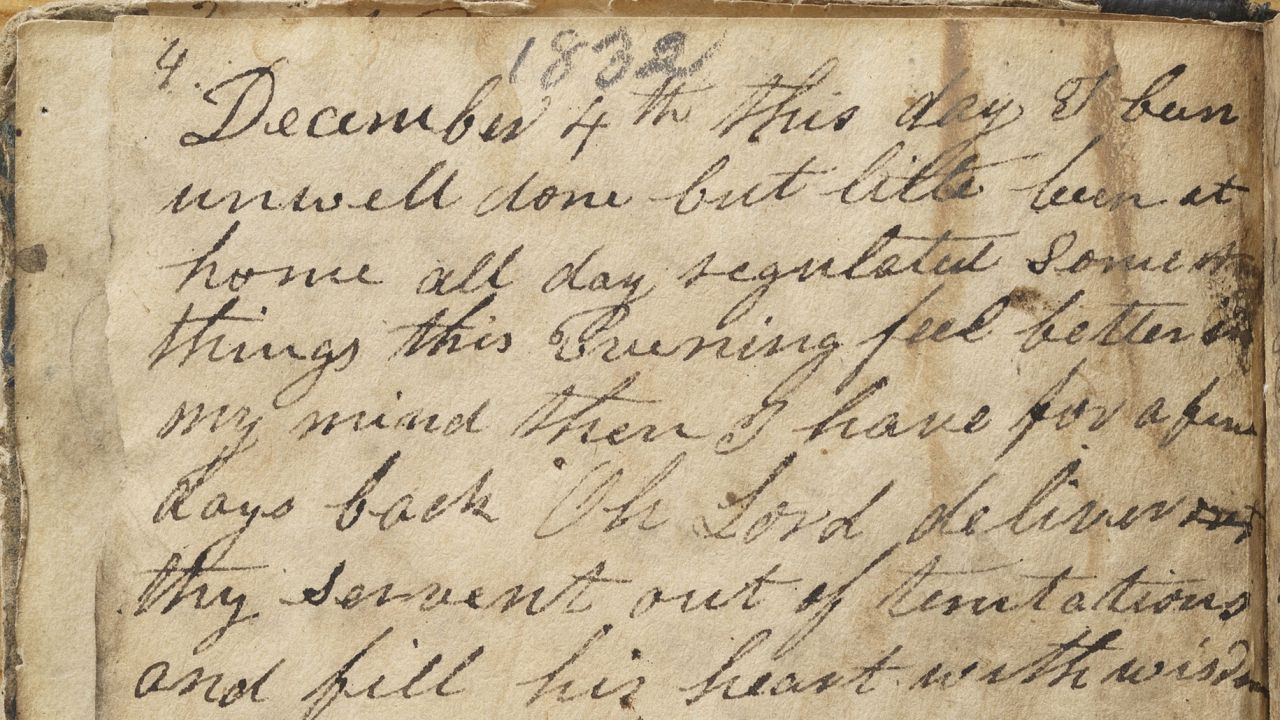 4. 1832
December 4th this day I been
unwell done but little been at
home all day regulated some
things this Evening feel better in
my mind then I have for a fiew
days back Oh Lord deliver
thy servent out of temtations
and fill his heart with wisdom